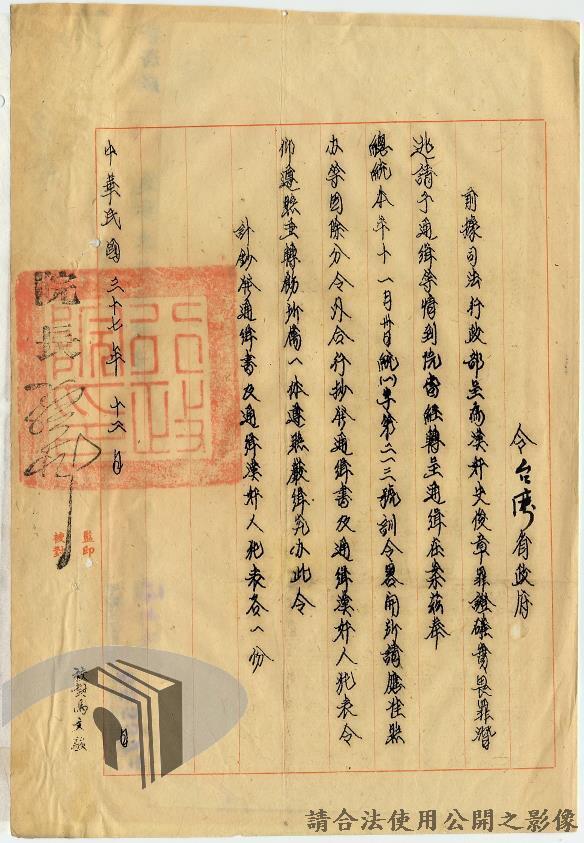 令台灣省政府
前據司法行政部呈為漢奸史俊章罪證確實畏罪潛
逃請予通緝等情到院當經轉呈通緝在案茲奉
總統本年十一月廿日統㈠字第二一三號訓令畧開所請應准照
办等因除分令外合行抄發通緝書及通緝漢奸人犯表令
仰遵照並轉飭所屬一体遵照嚴緝究办此令
計鈔發通緝書及通緝漢奸人犯表各一份
中華民國三十七年十二月
日
院長
監印
校對
校對馬文
請合法使用公開之影像